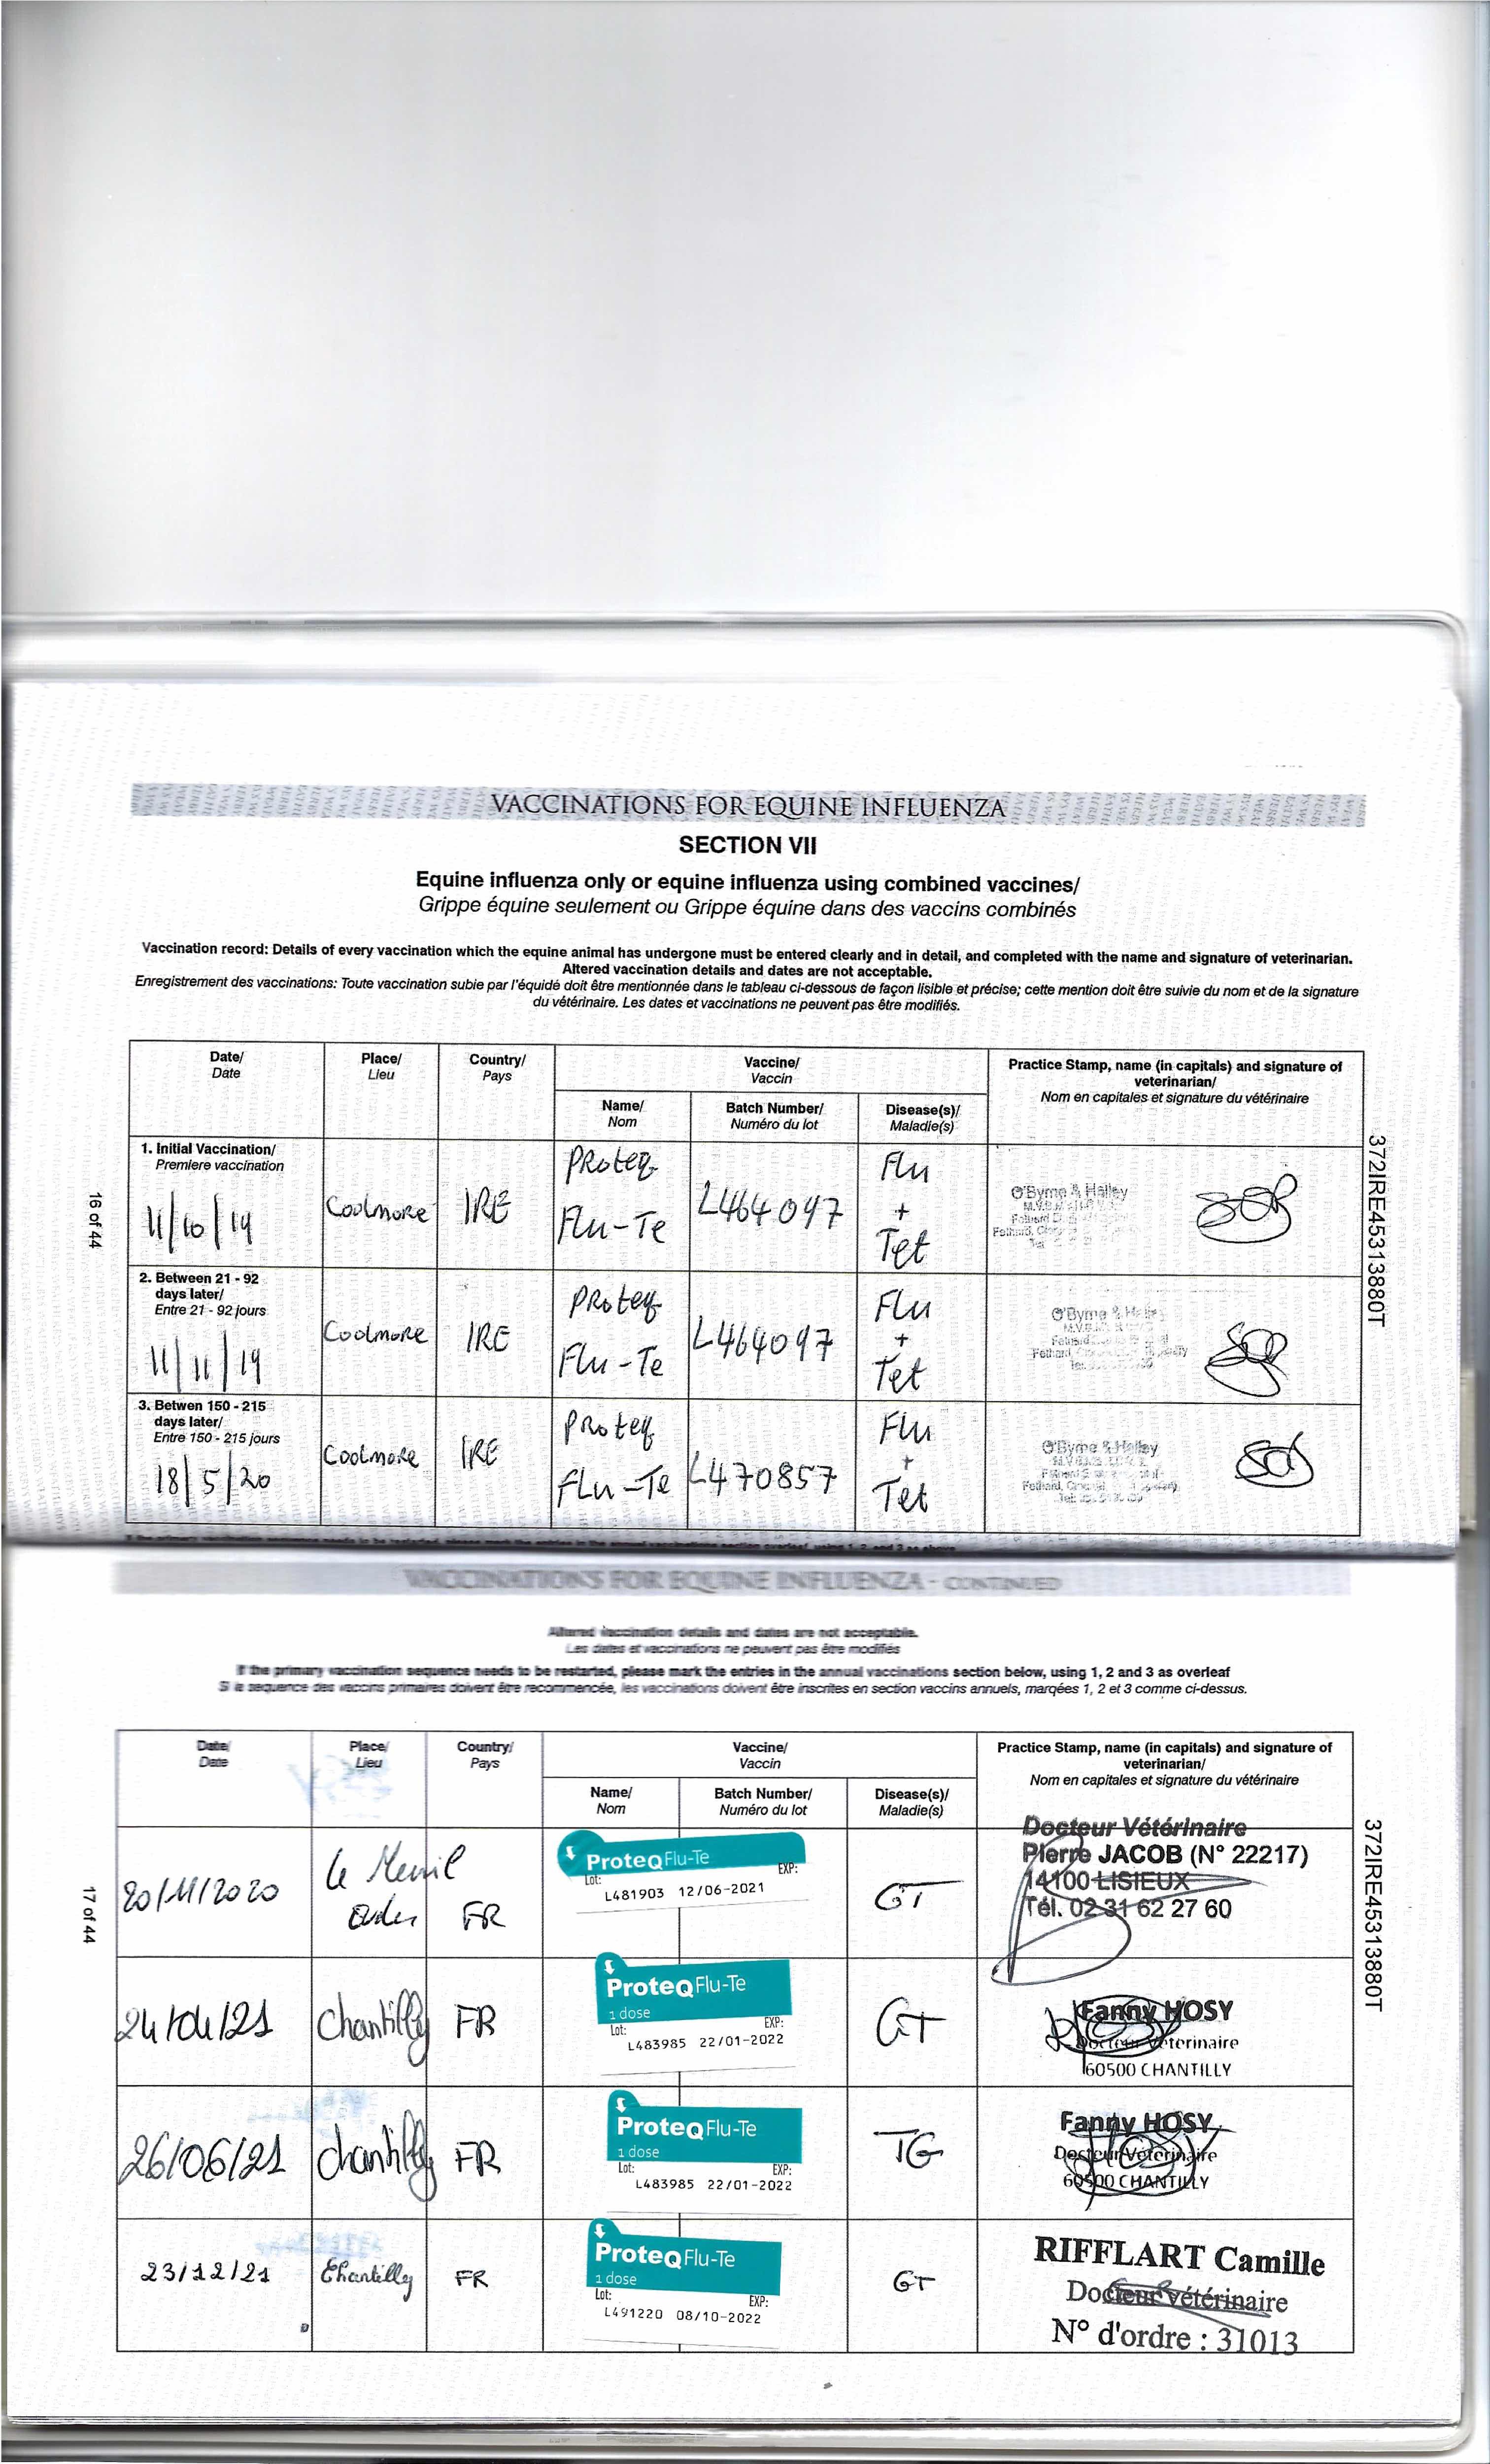 VACCINATIONS FOR EQUINE INFLUENZA
SECTION VII
Equine influenza only or equine influenza using combined vaccines/
Grippe équine seulement ou Grippe équine dans des vaccins combinés
Vaccination record: Details of every vaccination which the equine animal has undergone must be entered clearly and in detail, and completed with the name and signature of veterinarian.
Altered vaccination details and dates are not acceptable.
Enregistrement des vaccinations: Toute vaccination subie par l'équidé doit être mentionnée dans le tableau ci-dessous de façon lisible et précise; cette mention doit être suivie du nom et de la signature
du vétérinaire. Les dates et vaccinations ne peuvent pas être modifiés.
Date/ Place/ Country/ Vaccine/ Practice Stamp, name (in capitals) and signature of
Date Lieu Pays Vaccin veterinarian/
Nom en capitales et signature du vétérinaire
Name/ Batch Number/ Disease(s)/
Nom Numéro du lot Maladie(s)
1. Initial Vaccination/
Premiere vaccination
11/10/19 Coolmore IRE Proteq Flu-Te L464097 Flu + Tet O'Byrne & Halley
2. Between 21 - 92
days later/
Entre 21 - 92 jours
11/11/19 Coolmore IRE Proteq Flu-Te L464097 Flu + Tet O'Byrne &
3. Betwen 150 - 215
days later/
Entre 150 - 215 jours
18/5/20 Coolmore IRE Proteq Flu-Te L470857 Flu + Tet O'Byrne & Halley
16 of 44
372IRE45313880T
VACCINATIONS FOR EQUINE INFLUENZA - CONTINUED
Altered vaccination details and dates are not acceptable.
Les dates et vaccinations ne peuvent pas être modifiés
If the primary vaccination sequence needs to be restarted, please mark the entries in the annual vaccinations section below, using 1, 2 and 3 as overleaf
Si la sequence des vaccins primaires doivent être recommencée, les vaccinations doivent être inscrites en section vaccins annuels, marqées 1, 2 et 3 comme ci-dessus.
Date/ Place/ Country/ Vaccine/ Practice Stamp, name (in capitals) and signature of
Date Lieu Pays Vaccin veterinarian/
Nom en capitales et signature du vétérinaire
Name/ Batch Number/ Disease(s)/
Nom Numéro du lot Maladie(s)
20/11/2020 Le FR
ProteqFlu-Te
Lot: EXP:
L481903 12/06-2021
GT
Docteur Vétérinaire
Pierre JACOB (N° 22217)
14100 LISIEUX
Tél. 02 31 62 27 60
24/04/21 Chantilly FR
ProteqFlu-Te
1 dose
Lot: EXP:
L483985 22/01-2022
GT
Fanny HOSY
Docteur Vétérinaire
60500 CHANTILLY
26/06/21 Chantilly FR
ProteqFlu-Te
1 dose
Lot: EXP:
L483985 22/01-2022
TG
Fanny HOSY
Docteur Vétérinaire
60500 CHANTILLY
23/12/21 Chantilly FR
ProteqFlu-Te
1 dose
Lot: EXP:
L491220 08/10-2022
GT
RIFFLART Camille
Docteur Vétérinaire
N° d'ordre : 31013
17 of 44
372IRE45313880T